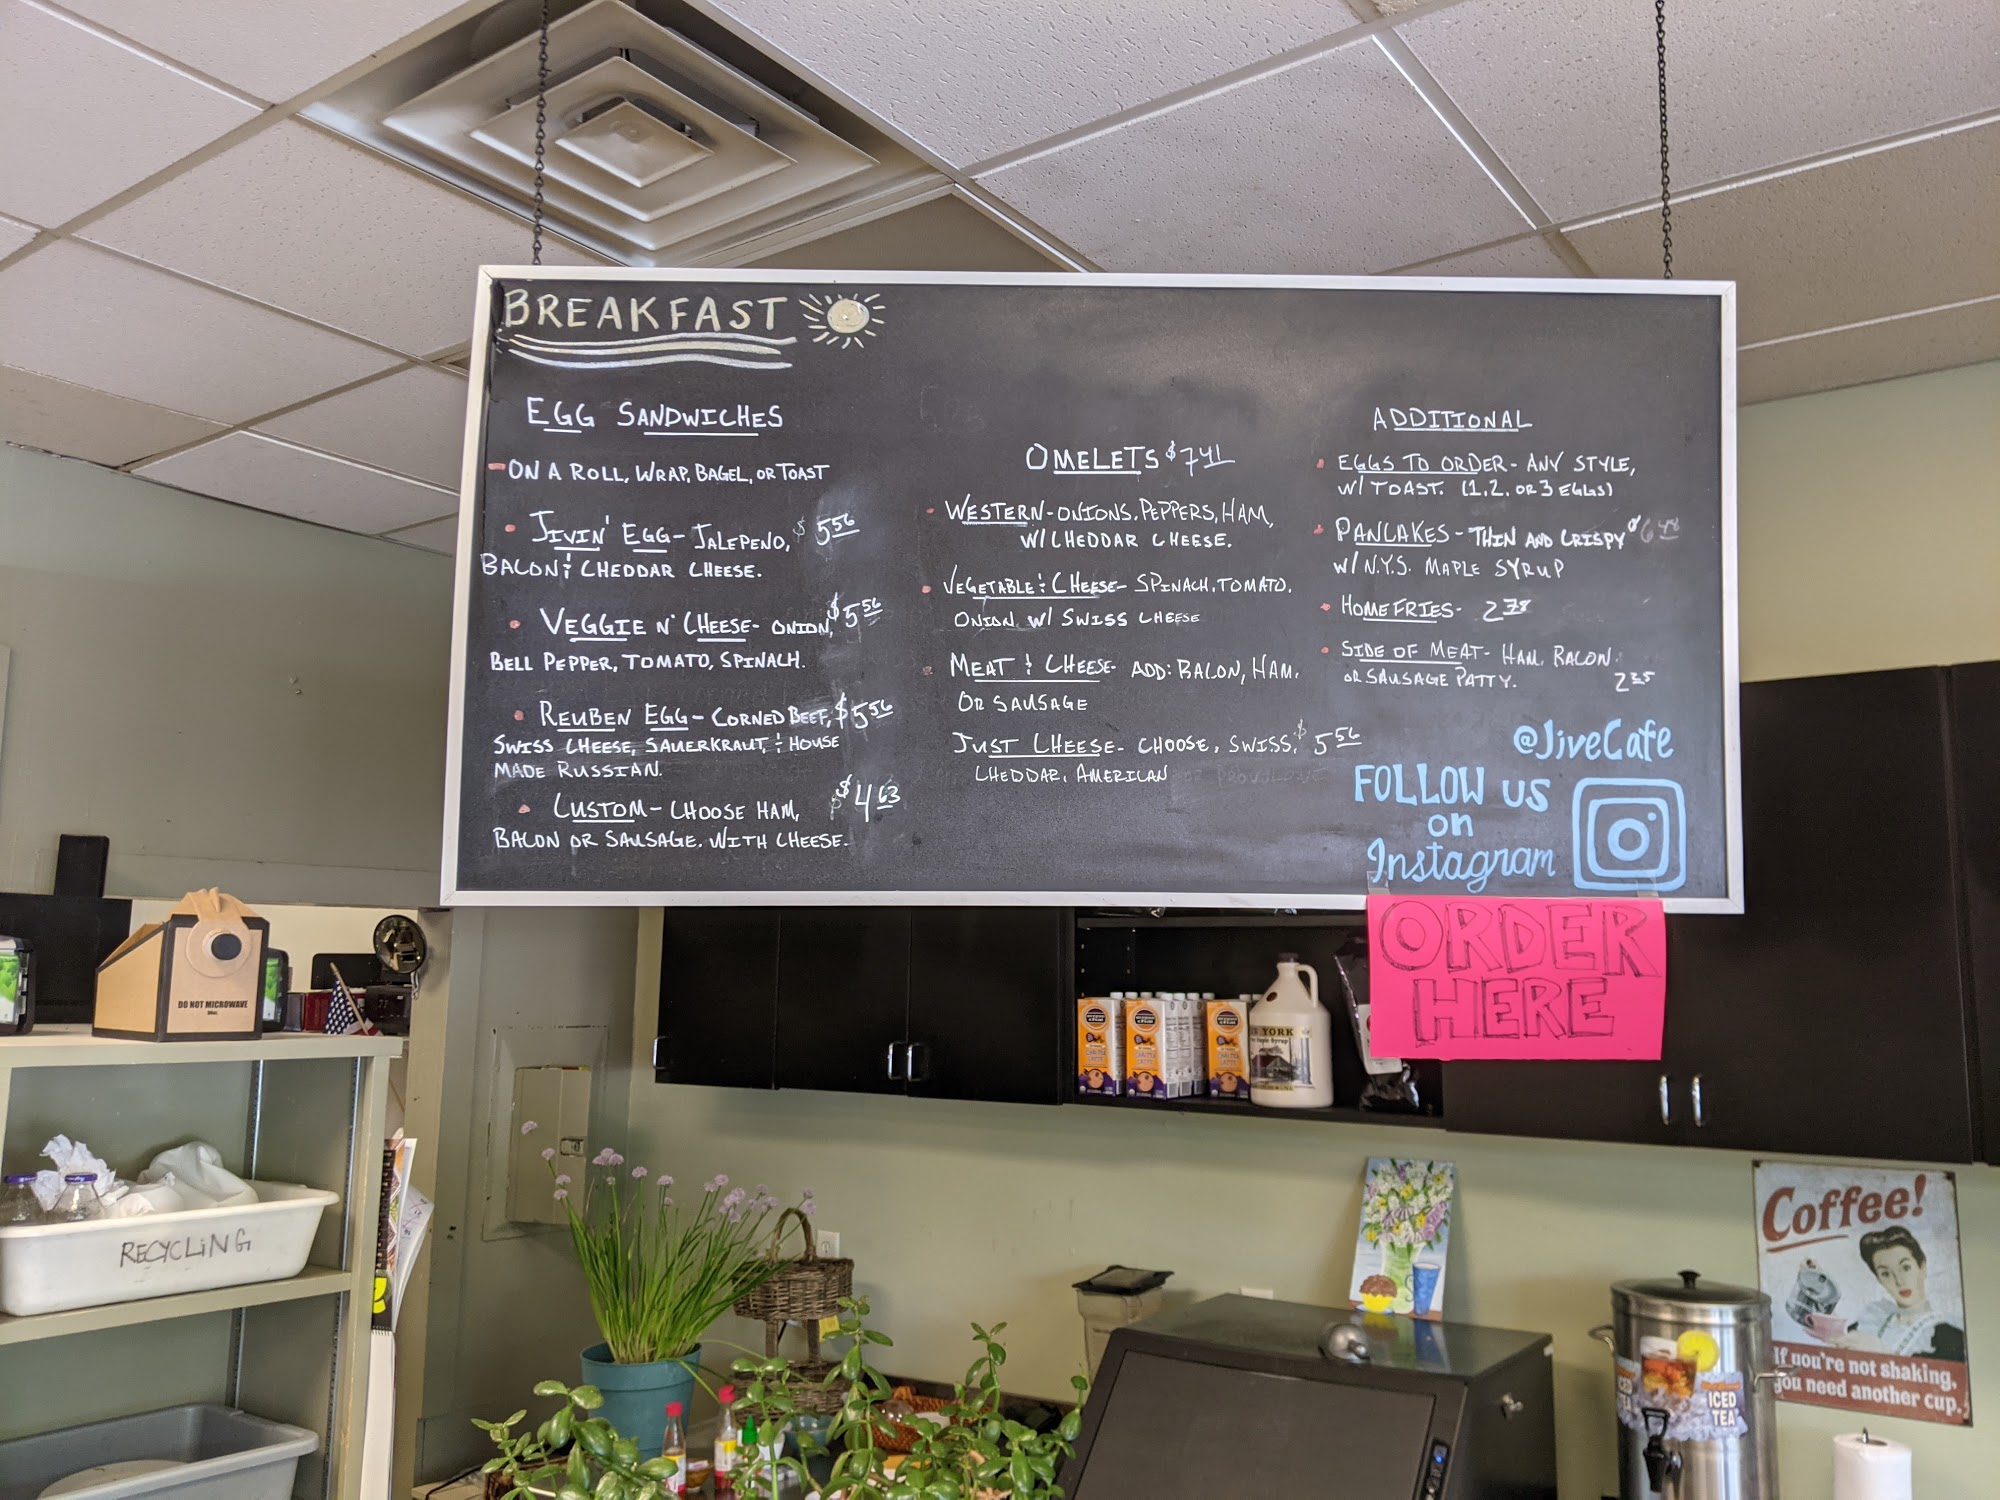 BREAKFAST
EGG SANDWICHES
- ON A ROLL, WRAP, BAGEL, OR TOAST
• JIVIN' EGG - JALEPENO, $5.56
BACON & CHEDDAR CHEESE.
• VEGGIE N' CHEESE - ONION, $5.56
BELL PEPPER, TOMATO, SPINACH.
• REUBEN EGG - CORNED BEEF, $5.56
SWISS CHEESE, SAUERKRAUT, & HOUSE
MADE RUSSIAN.
• CUSTOM - CHOOSE HAM, $4.63
BACON OR SAUSAGE. WITH CHEESE.
OMELETS $7.41
• WESTERN - ONIONS, PEPPERS, HAM,
W/ CHEDDAR CHEESE.
• VEGETABLE & CHEESE - SPINACH, TOMATO,
ONION W/ SWISS CHEESE
• MEAT & CHEESE - ADD: BACON, HAM,
OR SAUSAGE
JUST CHEESE - CHOOSE, SWISS, $5.56
CHEDDAR, AMERICAN OR PROVOLONE
ADDITIONAL
• EGGS TO ORDER - ANY STYLE,
W/ TOAST. (1, 2, OR 3 EGGS)
• PANCAKES - THIN AND CRISPY $6.48
W/ N.Y.S. MAPLE SYRUP
• HOMEFRIES - 2.78
• SIDE OF MEAT - HAM, BACON,
OR SAUSAGE PATTY. 2.35
@JiveCafe
FOLLOW US
on
Instagram
ORDER
HERE
DO NOT MICROWAVE
RECYCLING
YORK
Maple Syrup
Coffee!
If you're not shaking,
you need another cup.
ICED
TEA